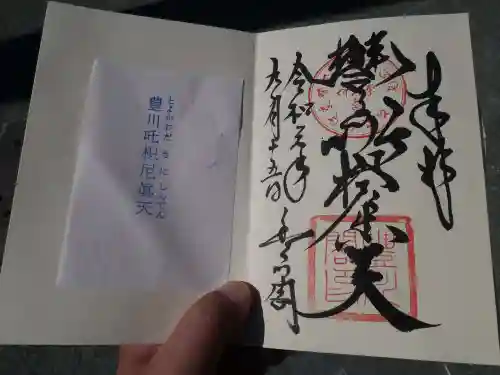 奉拝
豊川吒枳尼眞天
令和元年
九月十五日
豊川閣
とよかわだきにしんてん
豊川吒枳尼眞天